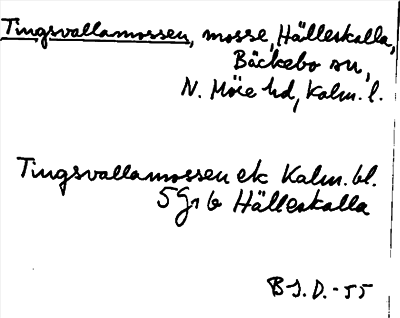 Tingsvallamossen, mosse, Hälleskalla,
Bäckebo sn,
N. Möre hd, Kalm. l.
Tingsvallamossen ek Kalm. bl.
5 g1 b Hälleskalla
B J. D. - 55